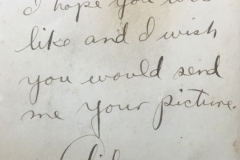 I hope you
like and I wish
you would send
me your picture.